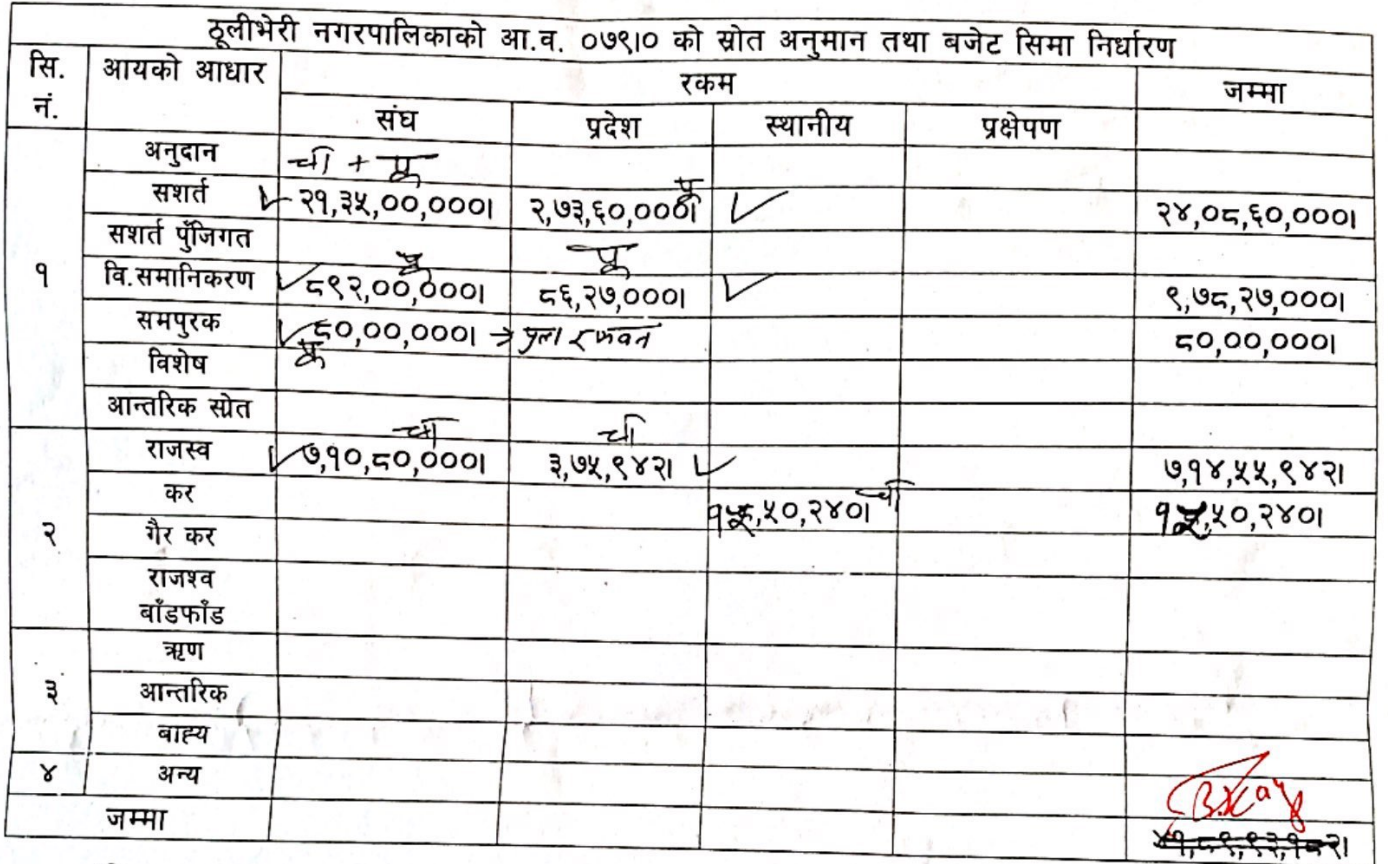 ठूलीभेरी नगरपालिकाको आ.व. ०७९।० को स्रोत अनुमान तथा बजेट सिमा निर्धारण
सि. नं. आयको आधार रकम जम्मा
संघ प्रदेश स्थानीय प्रक्षेपण
१ अनुदान चा + पू
सशर्त २१,३५,००,०००। २,७३,६०,०००। पू २४,०८,६०,०००।
सशर्त पुँजिगत
वि.समानिकरण पू ८९२,००,०००। पू ८६,२७,०००। ९,७८,२७,०००।
समपुरक ८०,००,०००। → ८०,००,०००।
विशेष पू
आन्तरिक स्रोत
२ राजस्व चा ७,१०,८०,०००। चा ३,७५,९४२। ७,१४,५५,९४२।
कर ५०,२४०। चा ५०,२४०।
गैर कर
राजश्व बाँडफाँड
३ ऋण
आन्तरिक
बाह्य
४ अन्य
जम्मा ४१,८९,९३,१८२।